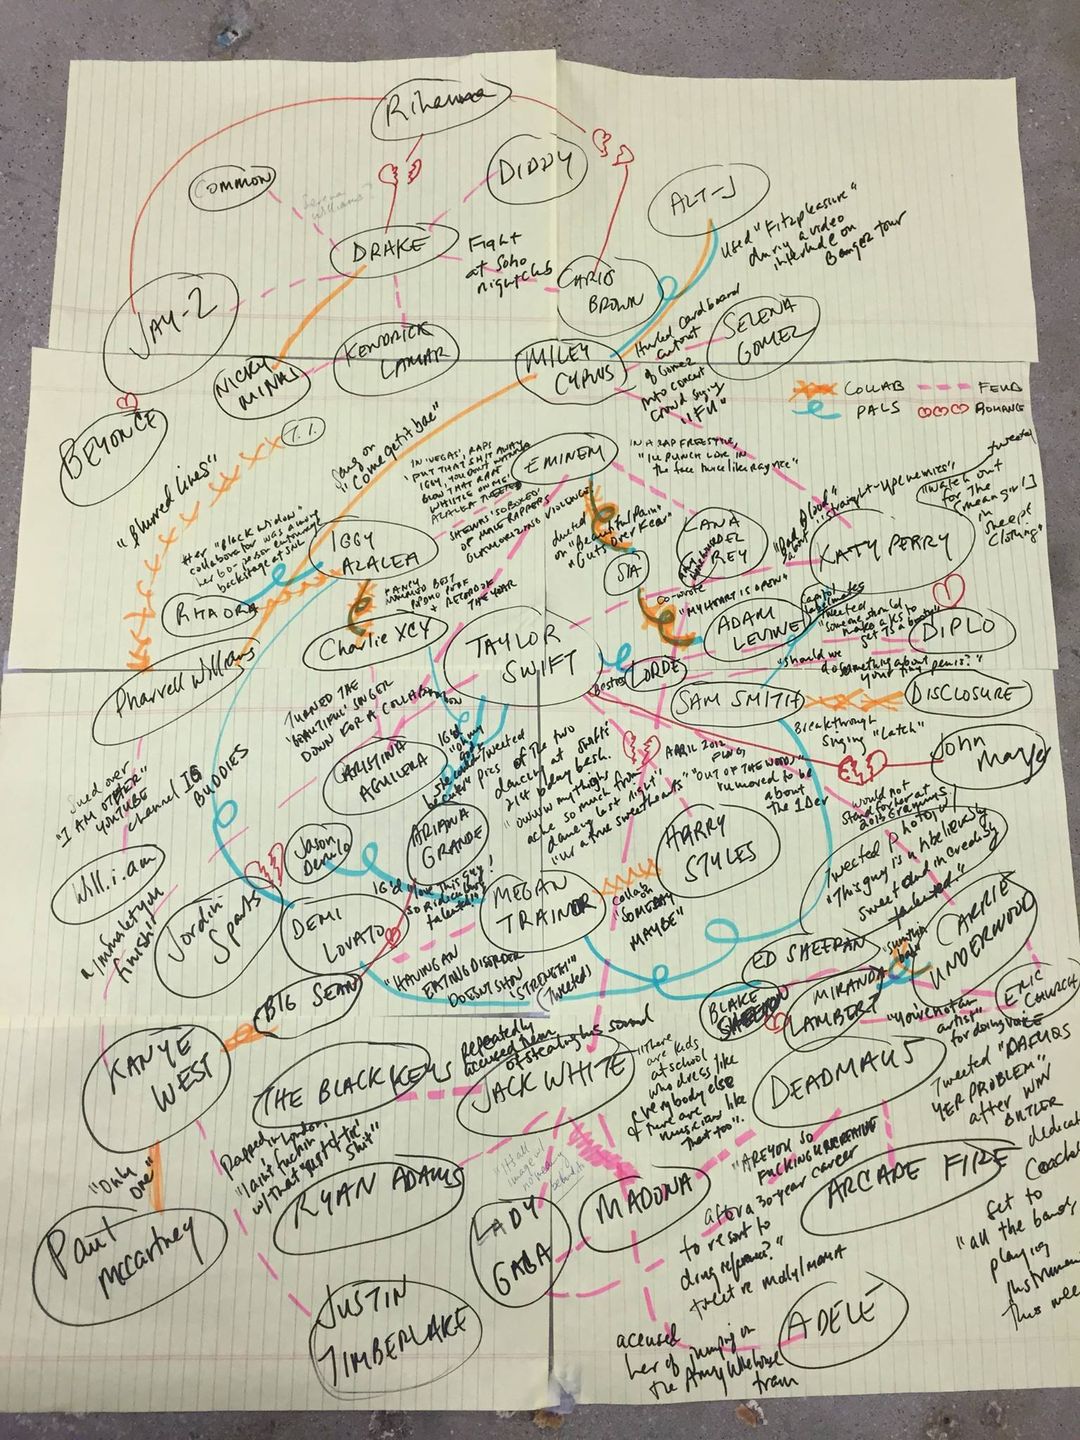 Rihanna
COMMON
DIDDY
ALT-J
DRAKE
Fight
at Soho
nightclub
used "Fitzpleasure"
during a video
interlude on
Bangerz tour
CHRIS
BROWN
JAY-Z
KENDRICK
LAMAR
NICKY
MINAJ
MILEY
CYRUS
SELENA
GOMEZ
Hurled cardboard
cutout
of Gomez
into concert
crowd singing
"FU"
COLLAB
FEUD
PALS
ROMANCE
BEYONCE
T.I.
"Blurred lines"
Sang on
"Come get it bae"
EMINEM
IN 'VEGAS', RAPS
'PUT THAT SHIT AWAY
IGGY, YOU DON'T WANNA
BLOW THAT RAPE
WHISTLE ON ME'
AZALEA TWEETED
OF MALE RAPPERS
GLAMORIZING VIOLENCE
IN A RAP FREESTYLE,
"I'LL PUNCH LDR IN
the face twice like Ray rice"
Her "Black Widow"
collaborator was among
her 60-person entourage
backstage at SNL
IGGY
AZALEA
RITA ORA
+ RECORD OF
THE YEAR
dueted
on "Beautiful Pain"
"Guts Over Fear"
SIA
LANA
DEL
REY
KATY PERRY
"Bad Blood"
about
"Straight-up enemies"
tweeted
"Watch out
for the
mean girl]
in
sheep's
clothing"
Charlie XCX
TAYLOR
SWIFT
co-wrote
"MY HEART IS OPEN"
ADAM
LEVINE
Capitol
labelmates
Tweeted
"Someone should
DIPLO
"should we
do something about
your tiny penis?"
besties
LORDE
SAM SMITH
DISCLOSURE
Breakthrough
singing "Latch"
Pharrell Williams
TURNED THE
'BEAUTIFUL' SINGER
DOWN FOR A COLLAB
CRISTINA
AGUILERA
tweeted
pics of the two
dancing at Swift's
25th bday bash.
"owww my thighs
ache so much from
dancing last night"
"ur a true sweetheart"
APRIL 2012
FLING
"OUT OF THE WOODS"
rumored to be
about
the 1Der
John
Mayer
would not
stand for her at
2013 Grammys
Sued over
"I AM OTHER"
YOUTUBE
channel
IG
BUDDIES
Will.i.am
Jordin
Sparks
Jason
Derulo
ARIANA
GRANDE
IG'd "love this guy!
so ridiculously
talented"
HARRY
STYLES
DEMI
LOVATO
MEGAN
TRAINOR
collab
on
"SOMEDAY
MAYBE"
Tweeted photo of/
"This guy is unbelievably
sweet and incredibly
talented."
ED SHEERAN
CARRIE
UNDERWOOD
"Somethin
bad"
"HAVING AN
EATING DISORDER
DOESN'T SHOW
'STRENGTH'"
(Tweeted)
BIG SEAN
BLAKE
MIRANDA
LAMBERT
ERIC
CHURCH
"You're not an
artist"
for doing VOICE
KANYE
WEST
THE BLACK KEYS
repeatedly
accused them
of stealing his sound
JACK WHITE
"There
are kids
at school
who dress like
everybody else
& there are
musicians like
that too".
DEADMAU5
Tweeted "DAFUQS
YER PROBLEM"
after WIN
BUTLER
dedicated
Coachella
set to
"all the bands
playing
instruments
this week
"Only
one"
Rapped in London,
"I ain't fuckin
w/ that
shit"
RYAN ADAMS
LADY
GAGA
MADONA
"ARE YOU SO
FUCKING UNCREATIVE
after a 30-year career
to resort to
drug reference?"
tweet re molly/MDMA
ARCADE FIRE
Paul
McCartney
JUSTIN
TIMBERLAKE
ADELE
accused
her of jumping on
the Amy Winehouse
train